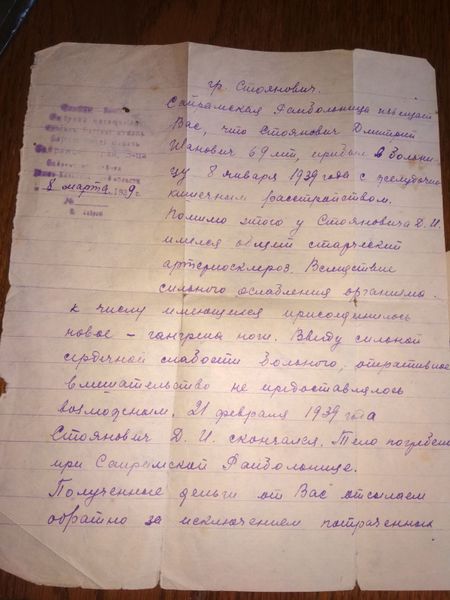 гр. Стоянович.
Сайрамская Райбольница извещает
Вас, что Стоянович Дмитрий
Иванович 69 лет, прибыл в больни-
цу 8 января 1939 года с желудочно
кишечным расстройством.
8 марта 1939 г.
Помимо этого у Стояновича Д. И.
имелся общий старческий
артериосклероз. Вследствие
сильного ослабления организма.
к числу имеющихся присоединилось
новое – гангрена ноги. Ввиду сильной
сердечной слабости больного, оперативное
вмешательство не предоставлялось
возможным. 21 февраля 1939 года
Стоянович Д. И. скончался. Тело погребено
при Сайрамской Райбольнице.
Полученные деньги от Вас отсылаем
обратно за исключением потраченных